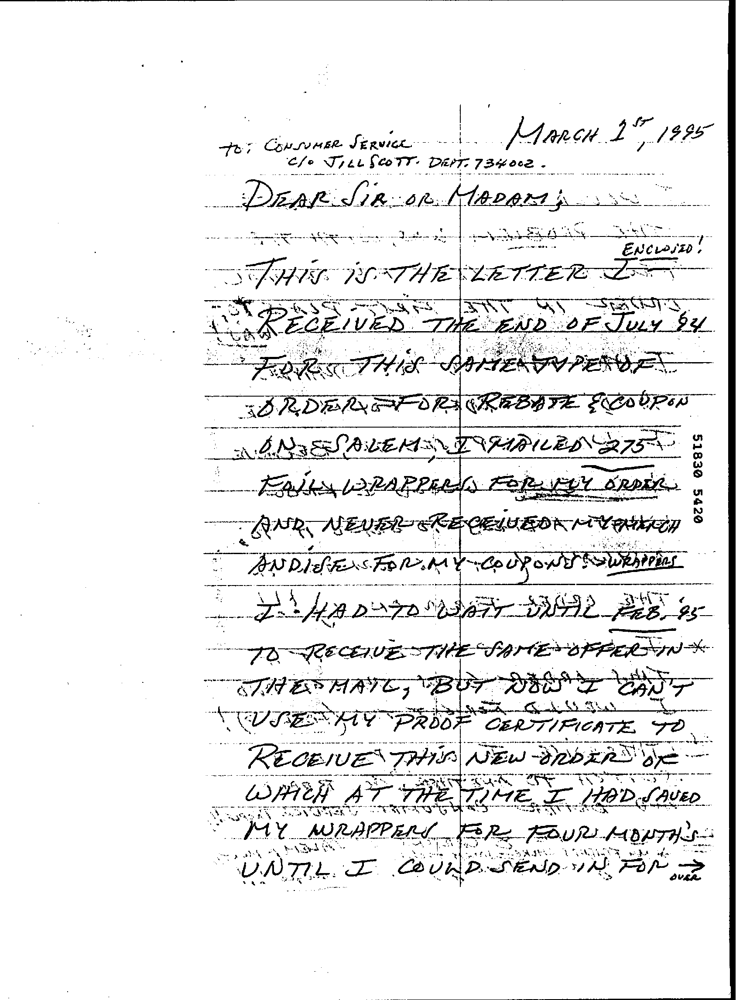 MARCH 1ST, 1995
TO: CONSUMER SERVICE
C/O JILL SCOTT. DEPT. 734002.
DEAR SIR OR MADAM;
ENCLOSED!
THIS IS THE LETTER I
RECEIVED THE END OF JULY 94
FOR THIS SAME TYPE OF
ORDER FOR REBATE & COUPON
ON SALEM, I MAILED 275
FAIL WRAPPERS FOR MY ORDER
AND NEVER RECEIVED MY MERCH
ANDISE FOR MY COUPONS & WRAPPERS
I HAD TO WAIT UNTIL FEB, 95
TO RECEIVE THE SAME OFFER IN *
THE MAIL, BUT NOW I CAN'T
USE MY PROOF CERTIFICATE TO
RECEIVE THIS NEW ORDER OF
WHICH AT THE TIME I HAD SAVED
MY WRAPPERS FOR FOUR MONTH'S
UNTIL I COULD SEND IN FOR →
OVER
51830 5420